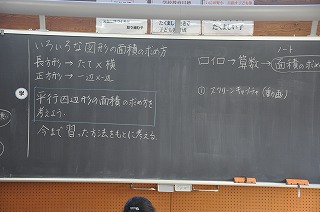 いろいろな図形の面積の求め方
長方形→たて×横
正方形→一辺×一辺
学
平行四辺形の面積の求め方を
考えよう。
今まで習った方法をもとに考える。
ノート
ロイロ→算数→面積の求め
① スクリーンキャプチャ(動画)